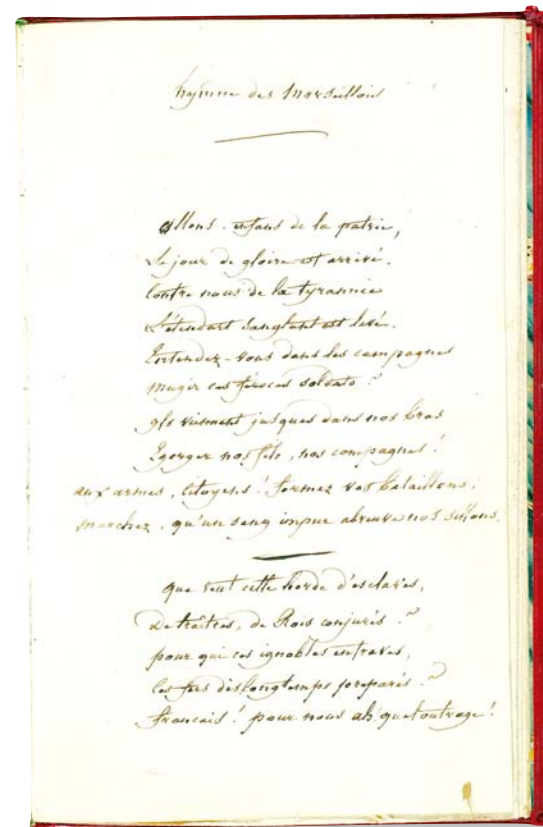 hymne des Marseillois
allons enfans de la patrie,
Le jour de gloire est arrivé.
Contre nous de la tyrannie
L'étendart sanglant est levé.
Entendez-vous dans les campagnes
Mugir ces féroces soldats ?
ils viennent jusques dans nos bras
Egorger nos fils, nos compagnes !
aux armes, Citoyens ! formez vos bataillons,
marchez, qu'un sang impur abreuve nos sillons.
que veut cette horde d'esclaves,
De traîtres, de Rois conjurés ?
pour qui ces ignobles entraves,
Ces fers dès longtemps préparés ?
français ! pour nous ah! quel outrage !